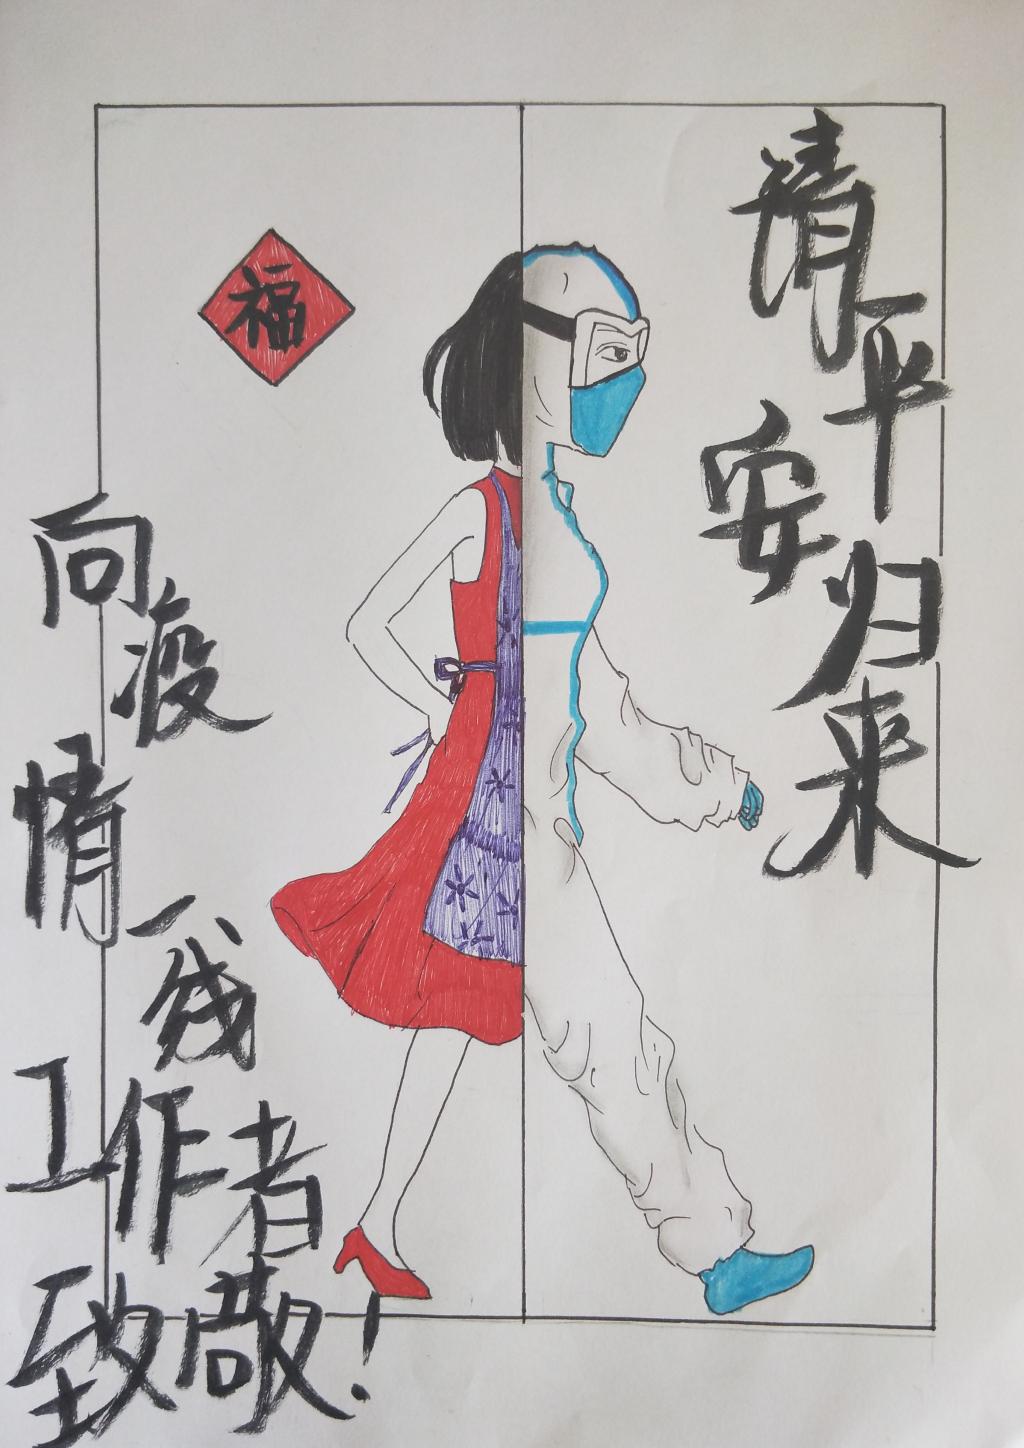 福
请平安归来
向疫情一线
工作者
致敬!